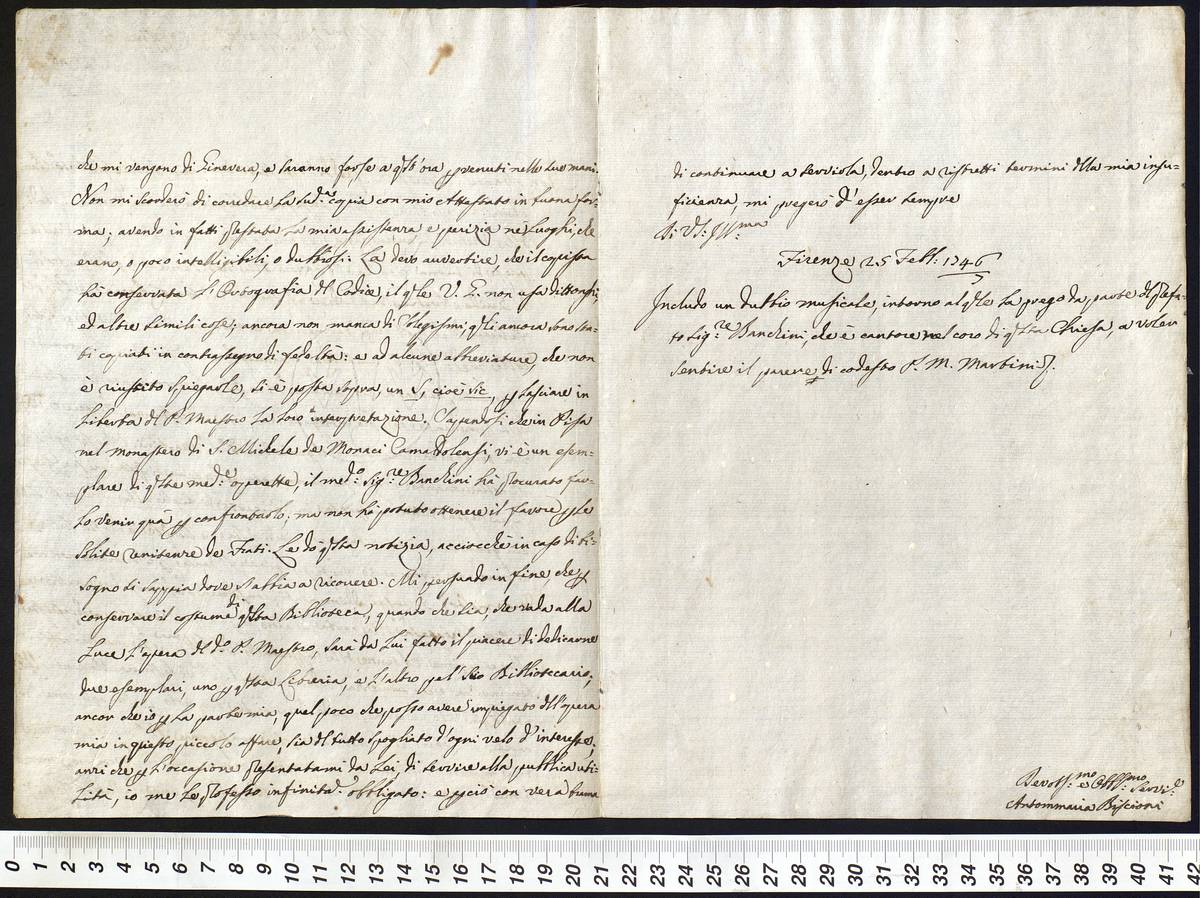 che mi vengono di Ginevera, e saranno forse a qst'ora pervenuti nelle sue mani.
Non mi scorderò di corredare la sud.ª copia con mio Attestato in buona for=
ma; avendo in fatti prestata la mia assistenza, e perizia ne' luoghi, che
erano, o poco intelligibili, o dubbiosi: La devo avvertire, che il copista
ha conservata l'Ortografia del Codice, il qle V. E. non usa dittonghi,
ed altre simili cose; ancora non manca di solegismi, qli ancora sono sta=
ti copiati in contrassegno di fedeltà: e ad alcune abbreviature, che non
è riuscito spiegarle, si è posta sopra, un S, cioè sic, p lasciare in
libertà del P. Maestro la loro interpretazione. Sapendosi che in Pisa
nel monastero di S. Michele de Monaci Camaldolensi, vi è un esem=
plare di qste med.e operette, il med.o Sig.re Banchini ha procurato far=
lo venir quà p confrontarlo; ma non ha potuto ottenere il favore p le
solite renitenze de Frati. Le do qsta notizia, acciocchè in caso di bi=
sogno si sappia dove s'abbia a ricorrere. Mi persuado in fine che p
conservare il costume di qsta Biblioteca, quando che sia, che vada alla
luce l'opera del d.o P. Maestro, sarà da lui fatto il piacere di dedicarne
due esemplari, uno p qsta Libreria, e l'altro pel Suo Bibliotecario;
ancor che io p la parte mia, quel poco che posso avere impiegato dell'opera
mia in questo piccolo affare, sia del tutto spogliato d'ogni velo d'interesse;
anzi che p l'occasione presentatami da Lei, di servire alla pubblica uti=
lità, io me le professo infinitam.e obbligato: e pciò con vera brama
di continuare a servirla, dentro a ristretti termini della mia insu=
ficienza, mi pregerò d'esser sempre
Di VS: Ill:ma
Firenze 25 Febb: 1746
Includo un dubbio musicale, intorno al qle la prego da parte del prefa=
to Sig.re Banchini, che è cantore nel coro di qsta Chiesa, a voler
sentire il parere di codesto P. M. Martini.
Devotis:mo e Obb:mo Servi.e
Antommaria Biscioni